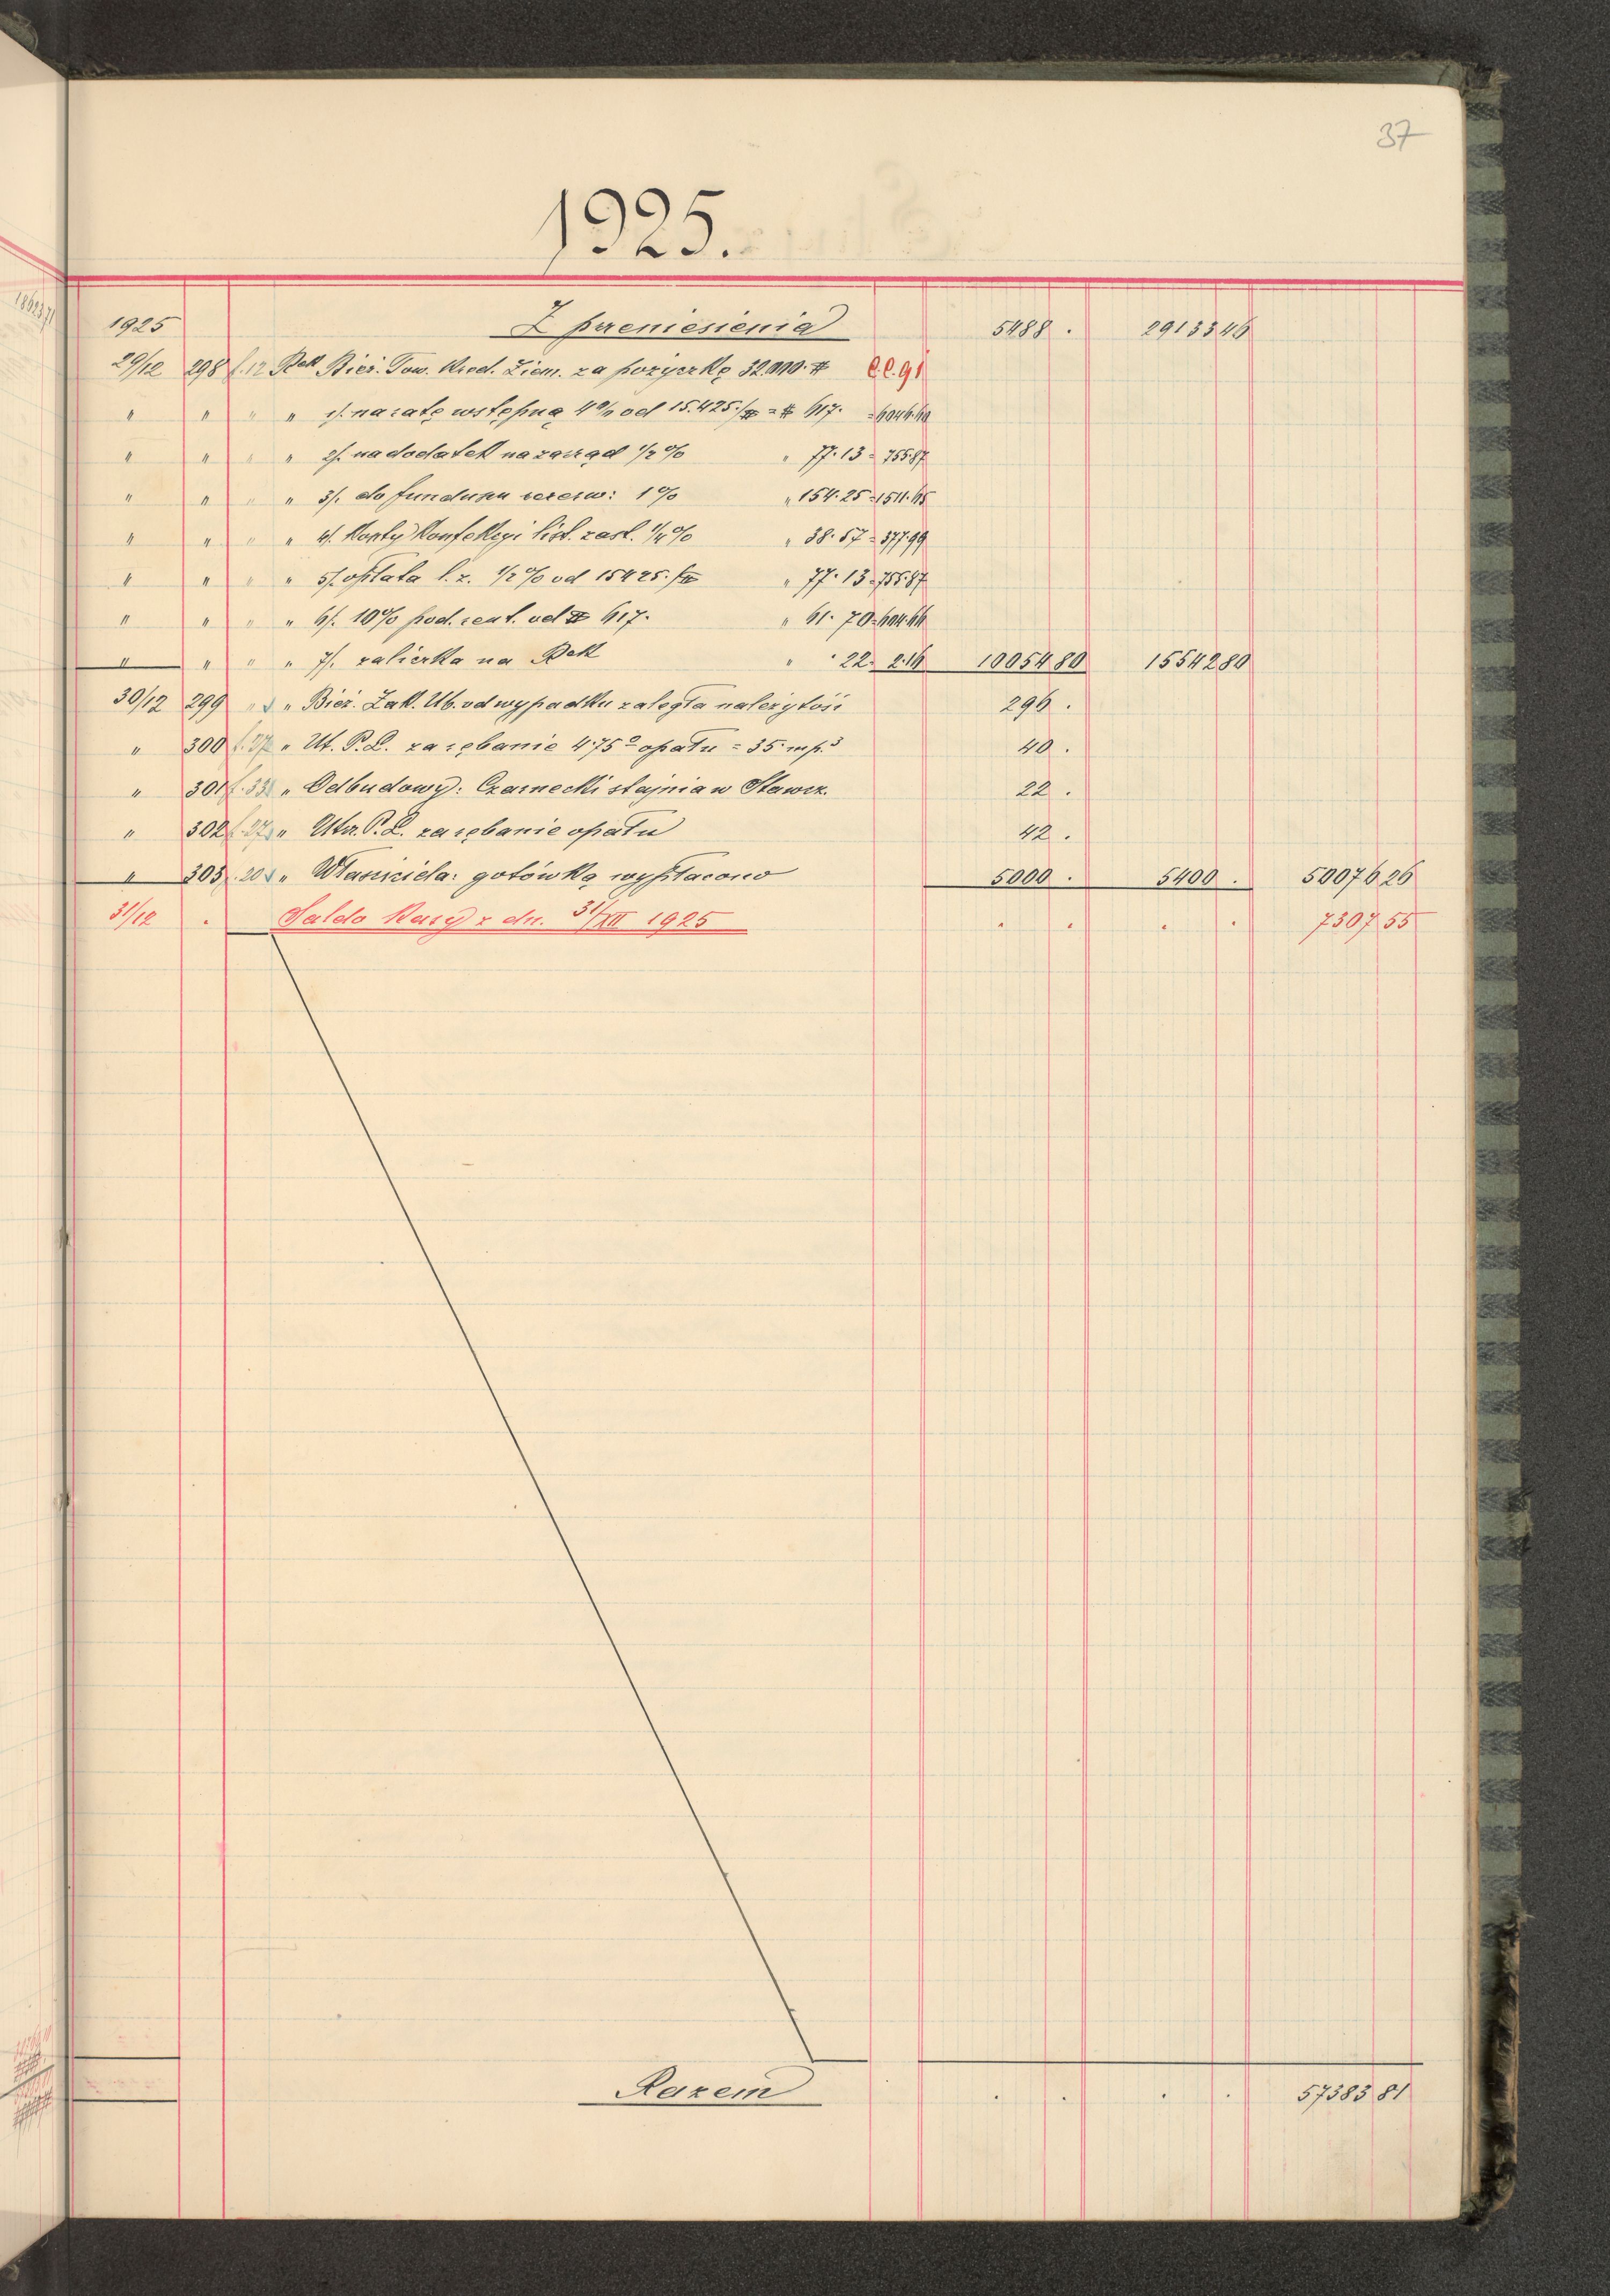 37
1925.
1925 Z przeniesienia 5488 . 29133 46
29/12 298 f. 12 Rek Bież. Tow. Kred. Ziem. za pożyczkę 32.000.# C.C. 91
" " " " 1/. na ratę wstępną 4% od 15.425./# = # 617. = 6046.60
" " " " 2/. na dodatek na zarząd 1/2% " 77.13 = 755.87
" " " " 3/. do funduszu rezerw: 1% " 154.25 = 1511.65
" " " " 4/. Koszty Konfekcyi list. zast. 1/4% " 38.57 = 377.99
" " " " 5/. opłata l. z. 1/2% od 15425. " 77.13 = 755.87
" " " " 6/. 10% pod. rent. od # 617. " 61.70 = 604.66
" " " " 7/. zaliczka na Rek " .22 = 2.16 10054 80 15542 80
30/12 299 " " Bież. Zak. Ub. od wypadku zaległa należytość 296 .
" 300 f. 27 " Ut. P.L. za rębanie 4.75 opału = 35 mp.3 40 .
" 301 f. 33 " Odbudowy: Czarnecki stajnia w Stawcz. 22 .
" 302 f. 27 " Utr. P.L. za rębanie opału 42 .
" 303 f. 20 " Właściciela: gotówką wypłacono 5000 . 5400 . 50076 26
31/12 . Saldo Kasy z dn. 31/XII 1925 . . . . 7307 55
Razem . . . . 57383 81